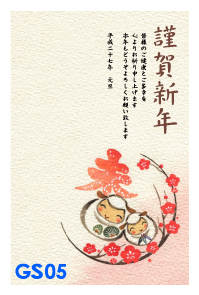 謹賀新年
皆様のご健康とご多幸を
心よりお祈り申し上げます
本年もどうぞよろしくお願い致します
平成二十七年 元旦
春
GS05